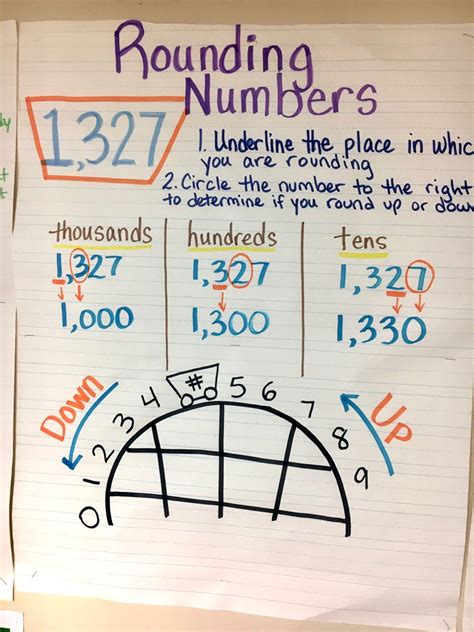 Rounding
Numbers
1,327
1. Underline the place in whic
you are rounding
2. Circle the number to the right
to determine if you round up or dow
thousands hundreds tens
1,327 1,327 1,327
1,000 1,300 1,330
Down 0 1 2 3 4 # 5 6 7 8 9 Up